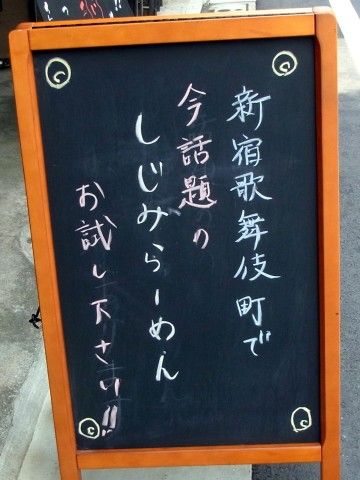 新宿歌舞伎町で
今話題の
しじみらーめん
お試し下さい!!